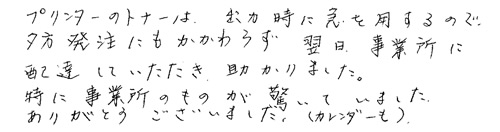 プリンターのトナーは、出力時に急を用するので、
夕方発注にもかかわらず 翌日、事業所に
配達していただき、助かりました。
特に事業所のものが驚いていました。
ありがとうございました。(カレンダーも)